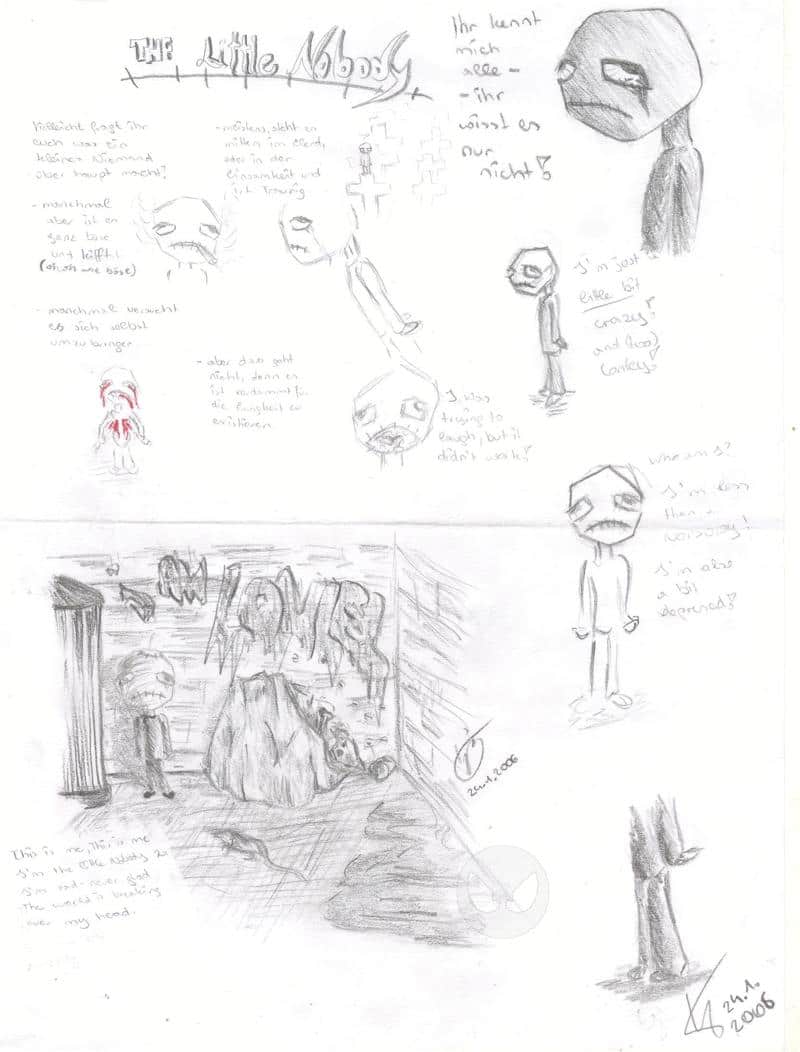 THE Little Nobody
Ihr kennt
mich
alle -
- ihr
wisst es
nur
nicht!
Vielleicht fragt ihr
euch was ein
kleiner Niemand
überhaupt macht?
- meistens steht er
mitten im Elend,
oder in der
Einsamkeit und
ist Traurig
- manchmal
aber ist er
ganz böse
und kifft!
- manchmal versucht
es sich selbst
umzubringen...
- aber das geht
nicht, denn er
ist verdammt für
die Ewigkeit zu
existieren.
I was
trying to
laugh, but it
didn't work!
I'm just a
little bit
crazy!
and (too)
Who am I?
I'm less
then a
Nobody!
I'm also
a bit
depressed!
I AM
24.1.2006
This is me, This is me
I'm the little Nobody
I'm sad - never glad
The world is breaking
over my head.
24.1.
2006